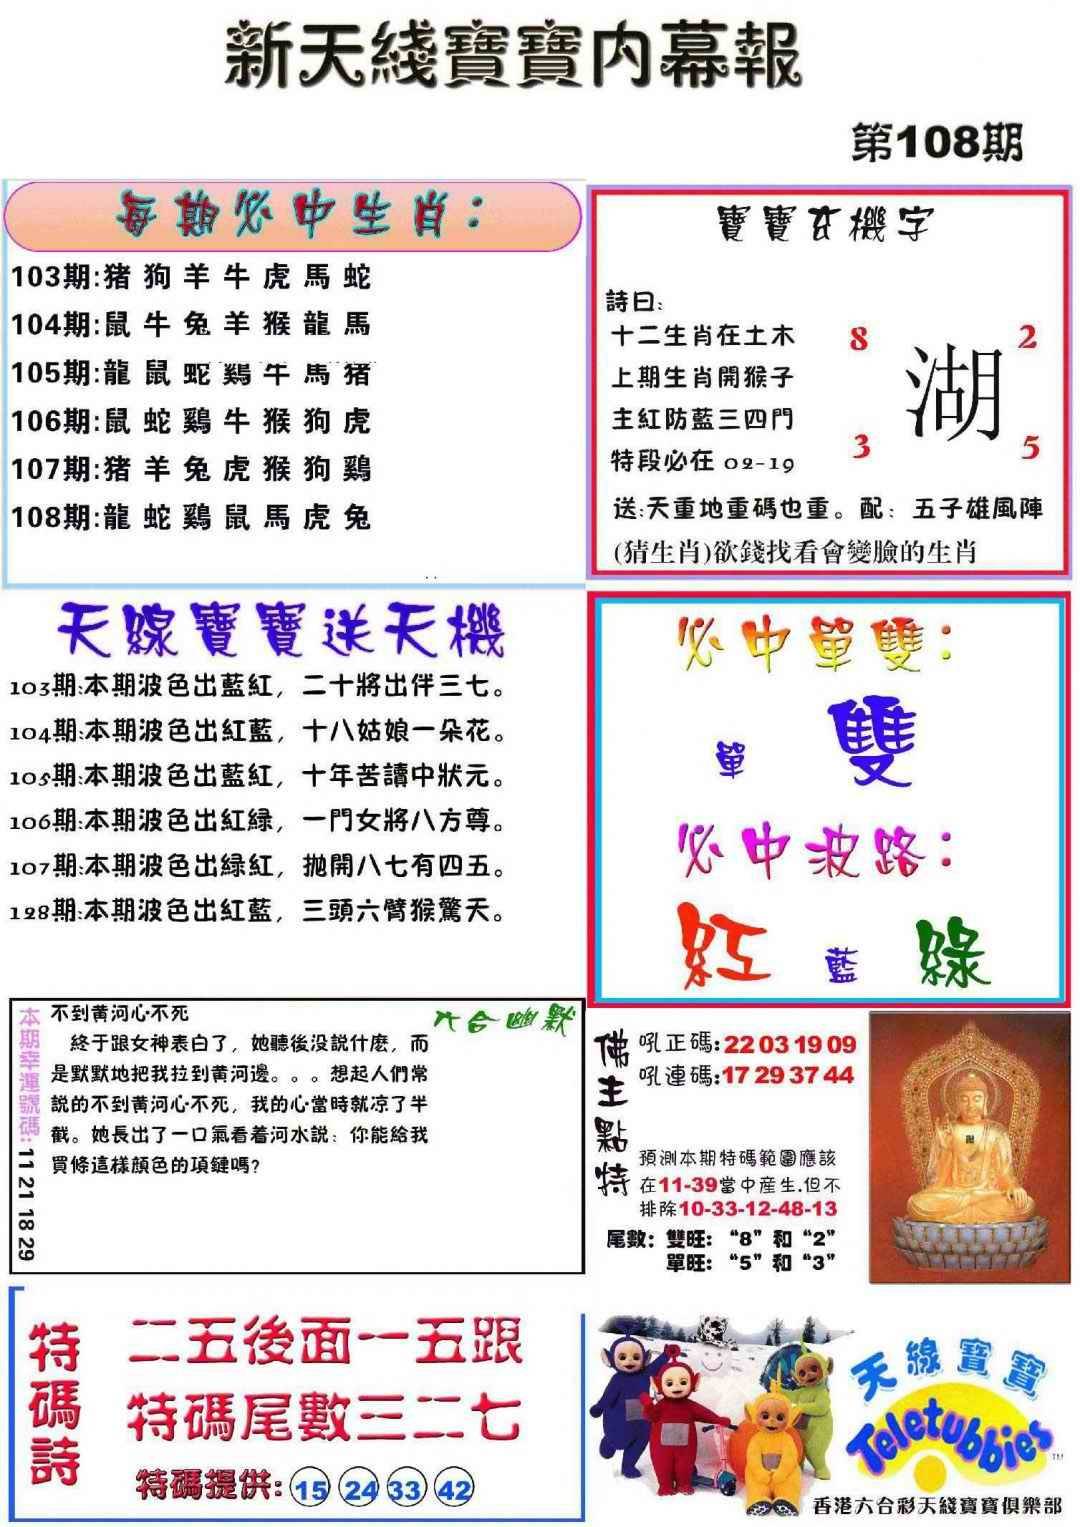 新天綫寶寶内幕報
第108期
每期必中生肖：
103期:猪狗羊牛虎馬蛇
104期:鼠牛兔羊猴龍馬
105期:龍鼠蛇鷄牛馬猪
106期:鼠蛇鷄牛猴狗虎
107期:猪羊兔虎猴狗鷄
108期:龍蛇鷄鼠馬虎兔
寶寶玄機字
詩曰:
十二生肖在土木
上期生肖開猴子
主紅防藍三四門
特段必在 02-19
8 2
湖
3 5
送:天重地重碼也重。配：五子雄風陣
(猜生肖)欲錢找看會變臉的生肖
天線寶寶送天機
103期:本期波色出藍紅，二十將出伴三七。
104期:本期波色出紅藍，十八姑娘一朵花。
105期:本期波色出藍紅，十年苦讀中狀元。
106期:本期波色出紅緑，一門女將八方尊。
107期:本期波色出緑紅，拋開八七有四五。
128期:本期波色出紅藍，三頭六臂猴驚天。
必中單雙：
單 雙
必中波路：
紅 藍 綠
本期幸運號碼:11 21 18 29
六合幽默
不到黄河心不死
終于跟女神表白了，她聽後没説什麽，而
是默默地把我拉到黄河邊。。。想起人們常
説的不到黄河心不死，我的心當時就凉了半
截。她長出了一口氣看着河水説：你能給我
買條這樣顔色的項鏈嗎?
佛主點特
吼正碼:22 03 19 09
吼連碼:17 29 37 44
預測本期特碼範圍應該
在11-39當中産生.但不
排除10-33-12-48-13
尾數：雙旺：“8”和“2”
單旺：“5”和“3”
特碼詩
二五後面一五跟
特碼尾數三二七
特碼提供: 15 24 33 42
天線寶寶
Teletubbies
TM
香港六合彩天綫寶寶俱樂部